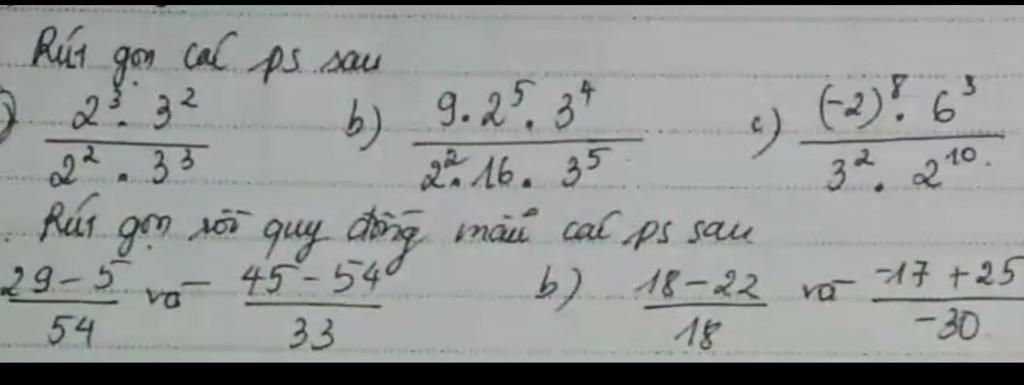 Rút gọn các ps sau
) \frac{2^3 . 3^2}{2^2 . 3^3} b) \frac{9 . 2^5 . 3^4}{2^2 . 16 . 3^5} c) \frac{(-2)^8 . 6^3}{3^2 . 2^{10}}
. Rút gọn rồi quy đồng mẫu các ps sau
\frac{29 - 5}{54} và \frac{45 - 54}{33} b) \frac{18 - 22}{18} và \frac{-17 + 25}{-30}